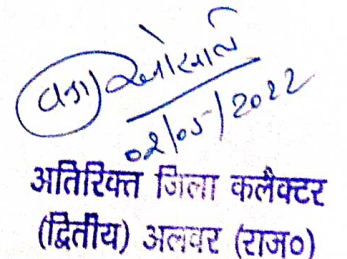 02/05/2022
अतिरिक्त जिला कलैक्टर
(द्वितीय) अलवर (राज०)